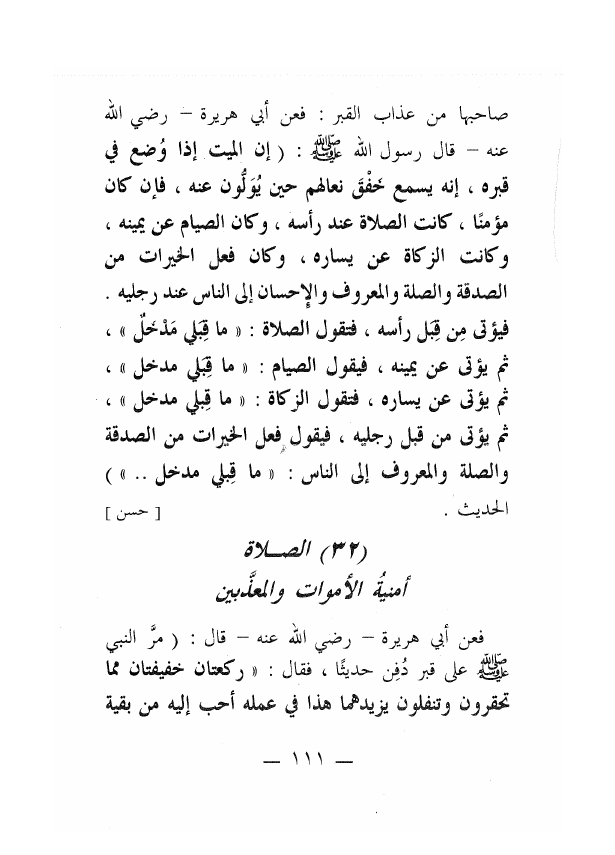 صاحبها من عذاب القبر : فعن أبي هريرة – رضي الله
عنه – قال رسول الله ﷺ : ( إن الميت إذا وُضع في
قبره ، إنه يسمع خَفْقَ نعالهم حين يُوَلُّون عنه ، فإن كان
مؤمنًا ، كانت الصلاة عند رأسه ، وكان الصيام عن يمينه ،
وكانت الزكاة عن يساره ، وكان فعل الخيرات من
الصدقة والصلة والمعروف والإحسان إلى الناس عند رجليه .
فيؤتى مِن قِبَل رأسه ، فتقول الصلاة : « ما قِبَلي مَدْخَلٌ » ،
ثم يؤتى عن يمينه ، فيقول الصيام : « ما قِبَلي مدخل » ،
ثم يؤتى عن يساره ، فتقول الزكاة : « ما قِبَلي مدخل » ،
ثم يؤتى من قبل رجليه ، فيقول فعل الخيرات من الصدقة
والصلة والمعروف إلى الناس : « ما قِبَلي مدخل .. » )
الحديث . [ حسن ]
(٣٢) الصـلاة
أمنيةُ الأموات والمعذَّبين
فعن أبي هريرة – رضي الله عنه – قال : ( مرَّ النبي
ﷺ على قبر دُفِن حديثًا ، فقال : « ركعتان خفيفتان مما
تحقرون وتنفلون يزيدهما هذا في عمله أحب إليه من بقية
— ١١١ —